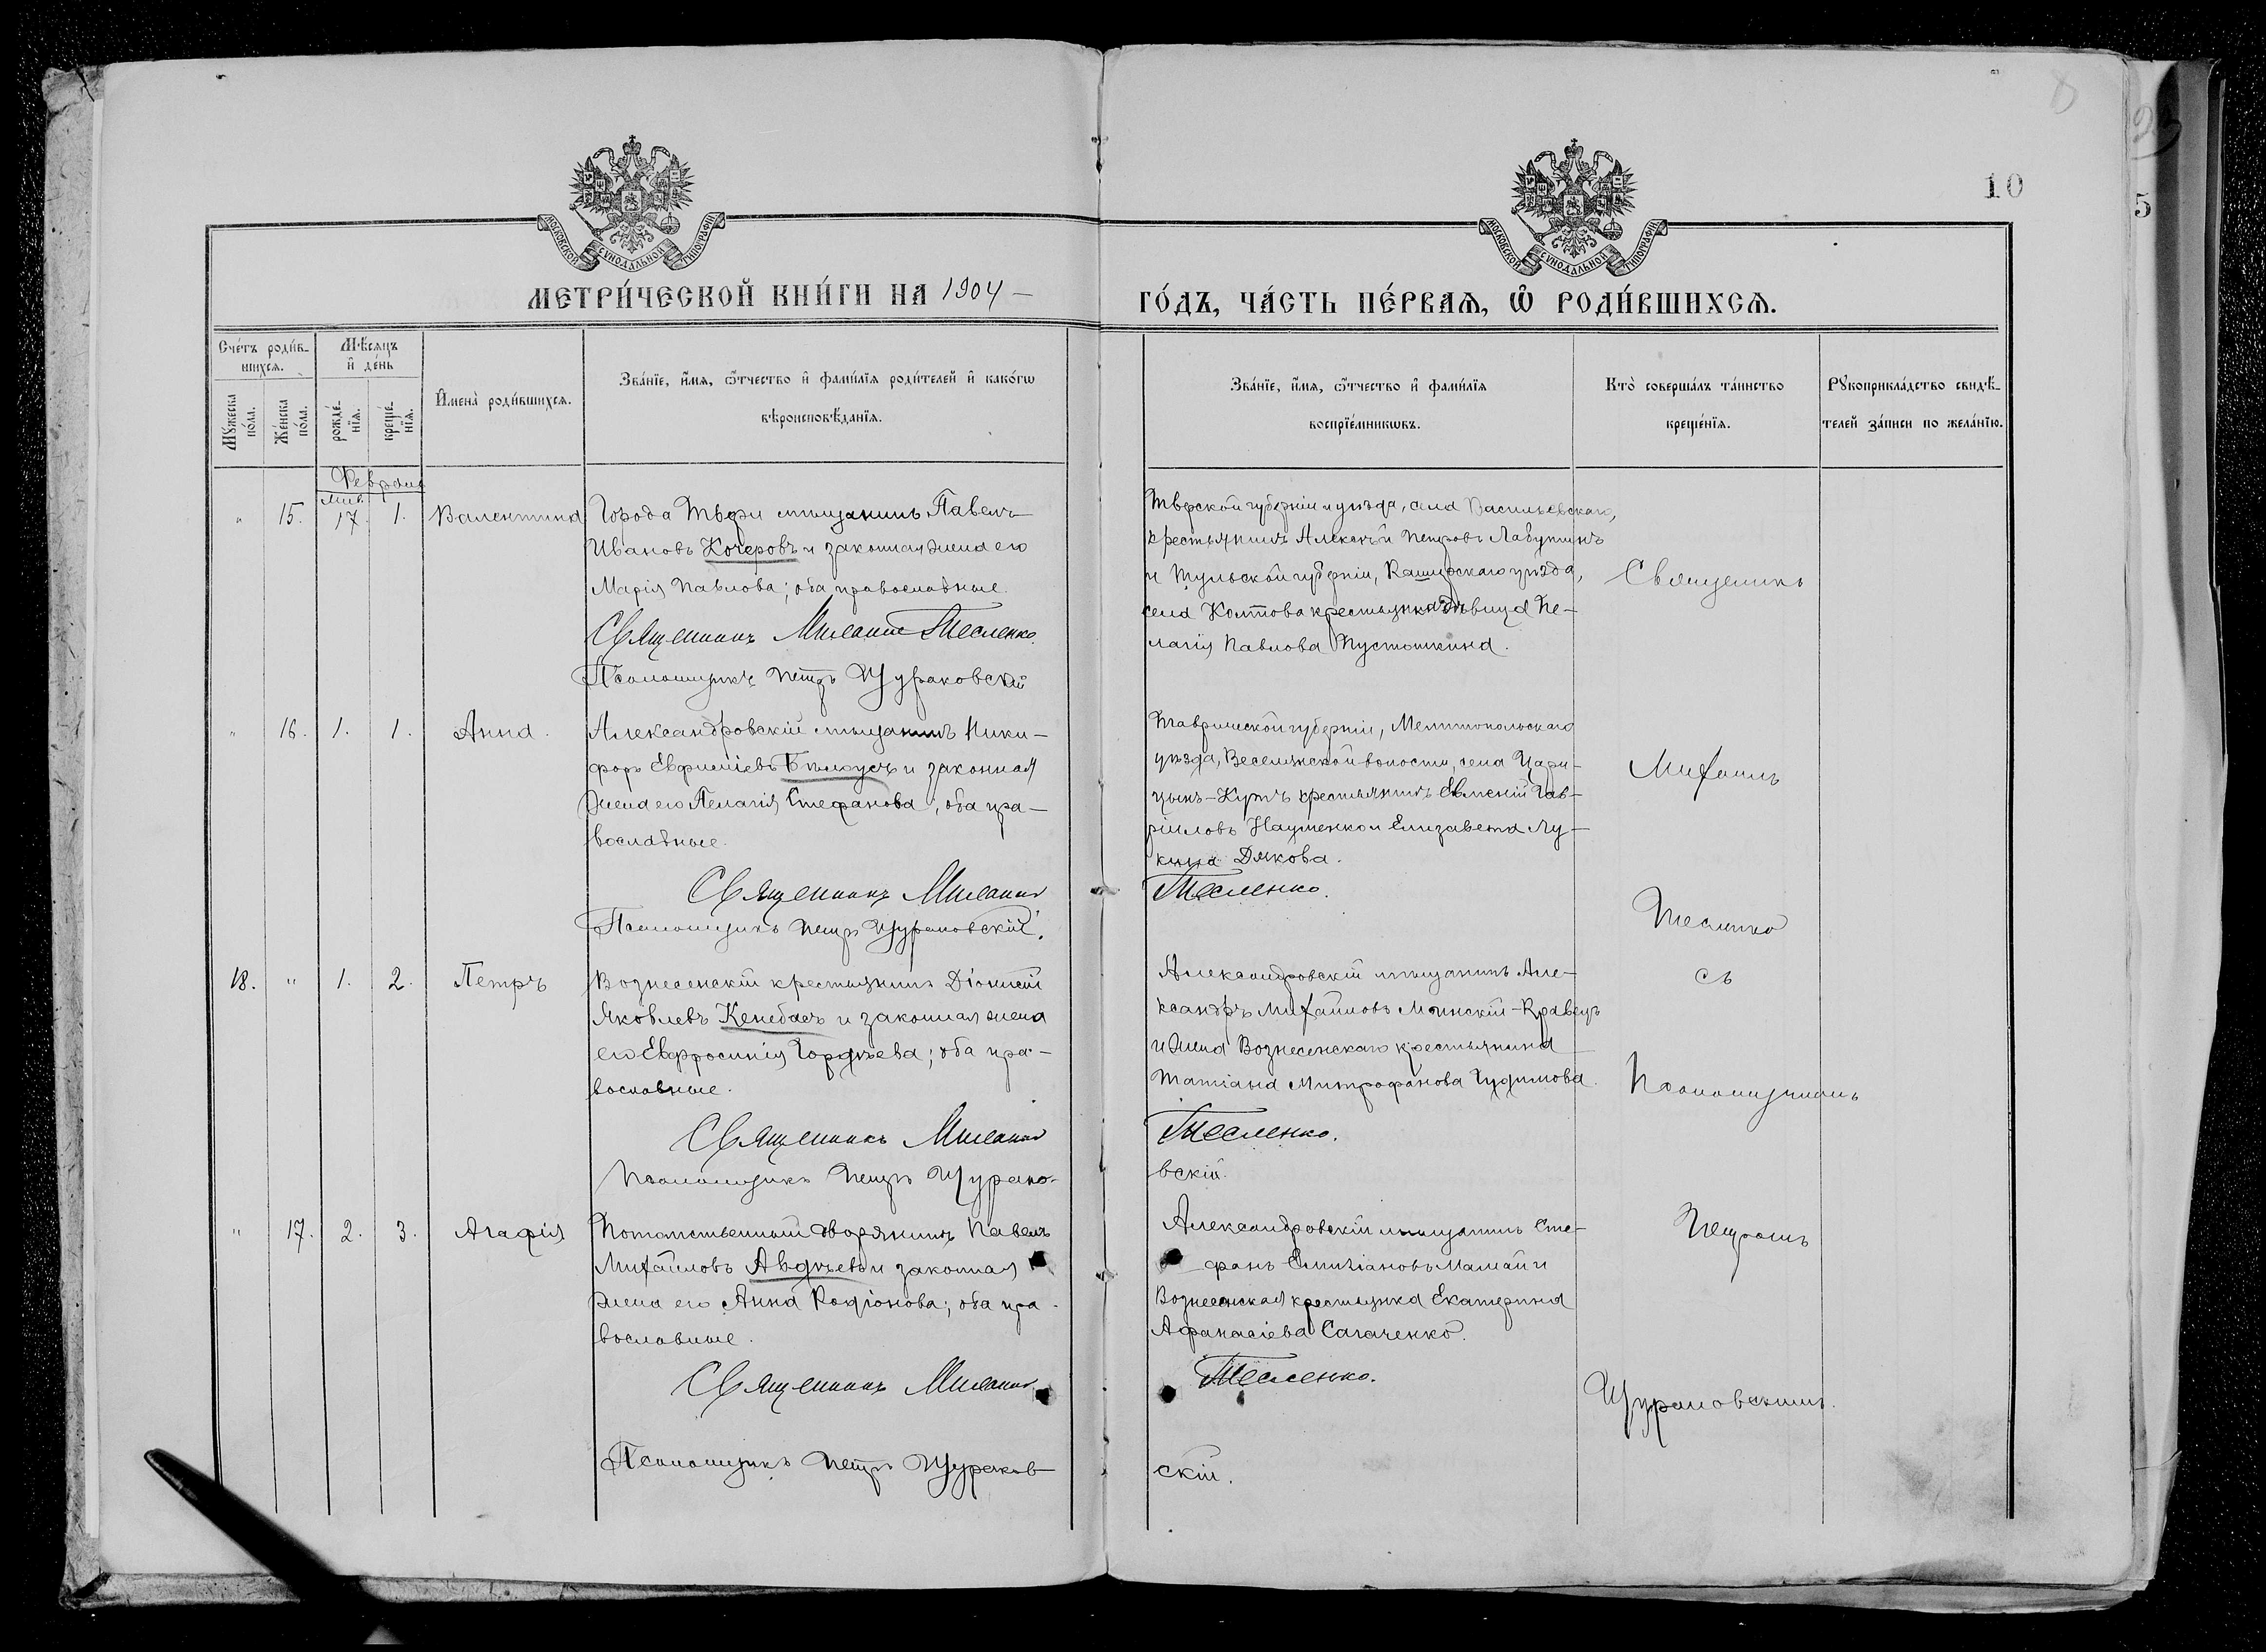 10
МОСКОВСКОЙ СУНОДАЛЬНОЙ ТИПОГРАФІИ
МОСКОВСКОЙ СУНОДАЛЬНОЙ ТИПОГРАФІИ
МЕТРИ́ЧЕСКОЙ КНИ́ГИ НА 1904 —
ГО́ДЪ, ЧА́СТЬ ПЕ́РВАѦ, Ѡ РОДИ́ВШИХСѦ.
Сче́тъ роди́в-
шихсѧ.
Мѣ́сѧцъ
и҆ де́нь
Мꙋ́жеска
по́ла.
Же́нска
по́ла.
рожде́-
нїѧ.
креще́-
нїѧ.
И҆мена̀ роди́вшихсѧ.
Зва́нїе, и҆́мѧ, ѻ҆́тчество и҆ фами́лїѧ роди́телей и҆ како́гѡ
вѣроисповѣ́данїѧ.
Зва́нїе, и҆́мѧ, ѻ҆́тчество и҆ фами́лїѧ
воспрїе́мникѡвъ.
Кто̀ соверша́лъ та́инство
креще́нїѧ.
Рꙋкоприкла́дство свидѣ́-
телей за́писи по жела́нїю.
Февраль
Янв.
" 15. 17. 1. Валентина
Города Твери мѣщанинъ Павелъ
Ивановъ Кочеровъ и законная жена его
Марія Павлова; оба православные.
Священникъ Михаилъ Тесленко.
Псаломщикъ Петръ Щураковскій
Тверской губерніи и уѣзда, села Васильевскаго,
крестьянинъ Алексѣй Петровъ Лабутинъ
и Тульской губерніи, Каширскаго уѣзда,
села Колтова крестьянка дѣвица Пе-
лагія Павлова Пустошкина.
Священникъ
" 16. 1. 1. Анна.
Александровскій мѣщанинъ Ники-
форъ Евфиміевъ Бѣлоусъ и законная
жена его Пелагія Стефанова; оба пра-
вославные.
Священникъ Михаилъ
Псаломщикъ Петръ Щураковскій.
Таврической губерніи, Мелитопольскаго
уѣзда, Веселянской волости, села Цари-
цынъ-Кутъ крестьянинъ Евменій Гав-
ріиловъ Науменко и Елизавета Лу-
кина Дякова.
Тесленко.
Михаилъ
Тесленко
18. " 1. 2. Петръ
Вознесенскій крестьянинъ Діонисій
Яковлевъ Кенебасъ и законная жена
его Евфросинія Гордѣева; оба пра-
вославные.
Священникъ Михаилъ
Псаломщикъ Петръ Щурако-
Александровскій мѣщанинъ Але-
ксандръ Михайловъ Минскій-Кравецъ
и жена Вознесенскаго крестьянина
Татіана Митрофанова Гудимова.
Тесленко.
вскій.
съ
Псаломщикомъ
" 17. 2. 3. Агафія
Потомственный дворянинъ Павелъ
Михайловъ Авдѣевъ и законная
жена его Анна Родіонова; оба пра-
вославные.
Священникъ Михаилъ
Псаломщикъ Петръ Щураков-
Александровскій мѣщанинъ Сте-
фанъ Емиліановъ Мамай и
Вознесенская крестьянка Екатерина
Афанасіева Сагаченко.
Тесленко.
скій.
Петромъ
Щураковскимъ.